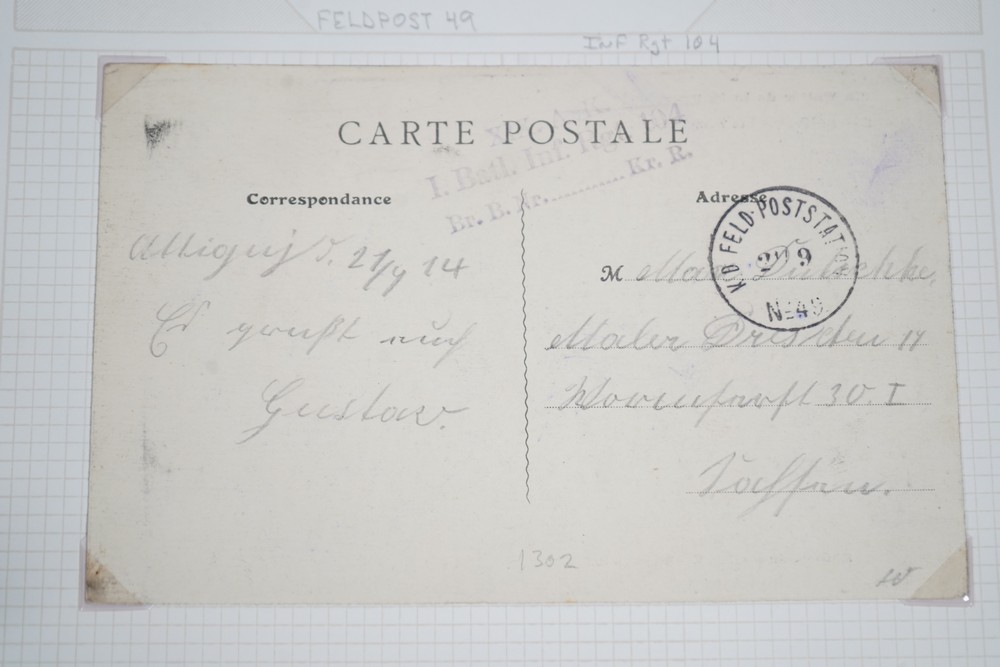 FELDPOST 49
Inf Rgt 104
CARTE POSTALE
I. Batl. Inf. Rgt. 104
Br. B. Nr. ............ Kr. R.
Correspondance
Adresse
K.D FELD-POSTSTATION
29 9
No 49
Attigny d. 21/9 14
Es grüßt euch
Gustav.
M
Maler Dresden 14
30. I
Sachsen.
1302